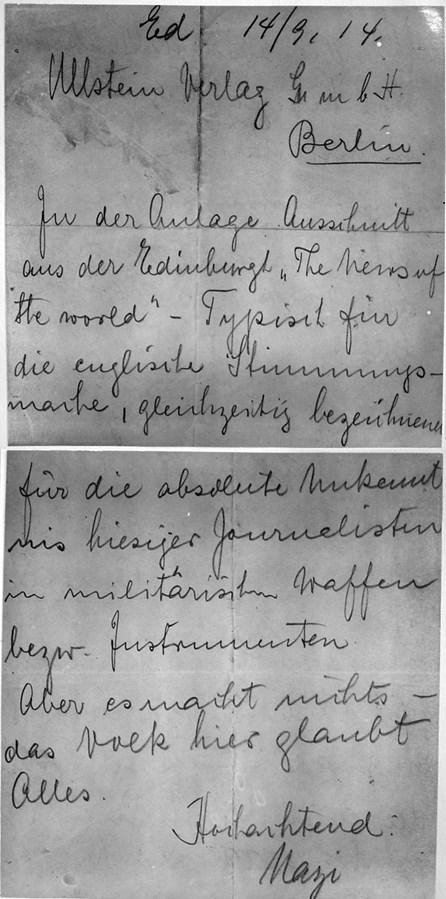 Ed. 14/9. 14.
Ullstein Verlag G. m b H.
Berlin.
In der Anlage Ausschnitt
aus der Edinburgh „The News of
the world" – Typisch für
die englische Stimmungs-
mache, gleichzeitig bezeichnend
für die absolute Unkennt
nis hiesiger Journalisten
in militärischen Waffen
bezw. Instrumenten
Aber es macht nichts –
das Volk hier glaubt
Alles.
Hochachtend:
Nazi